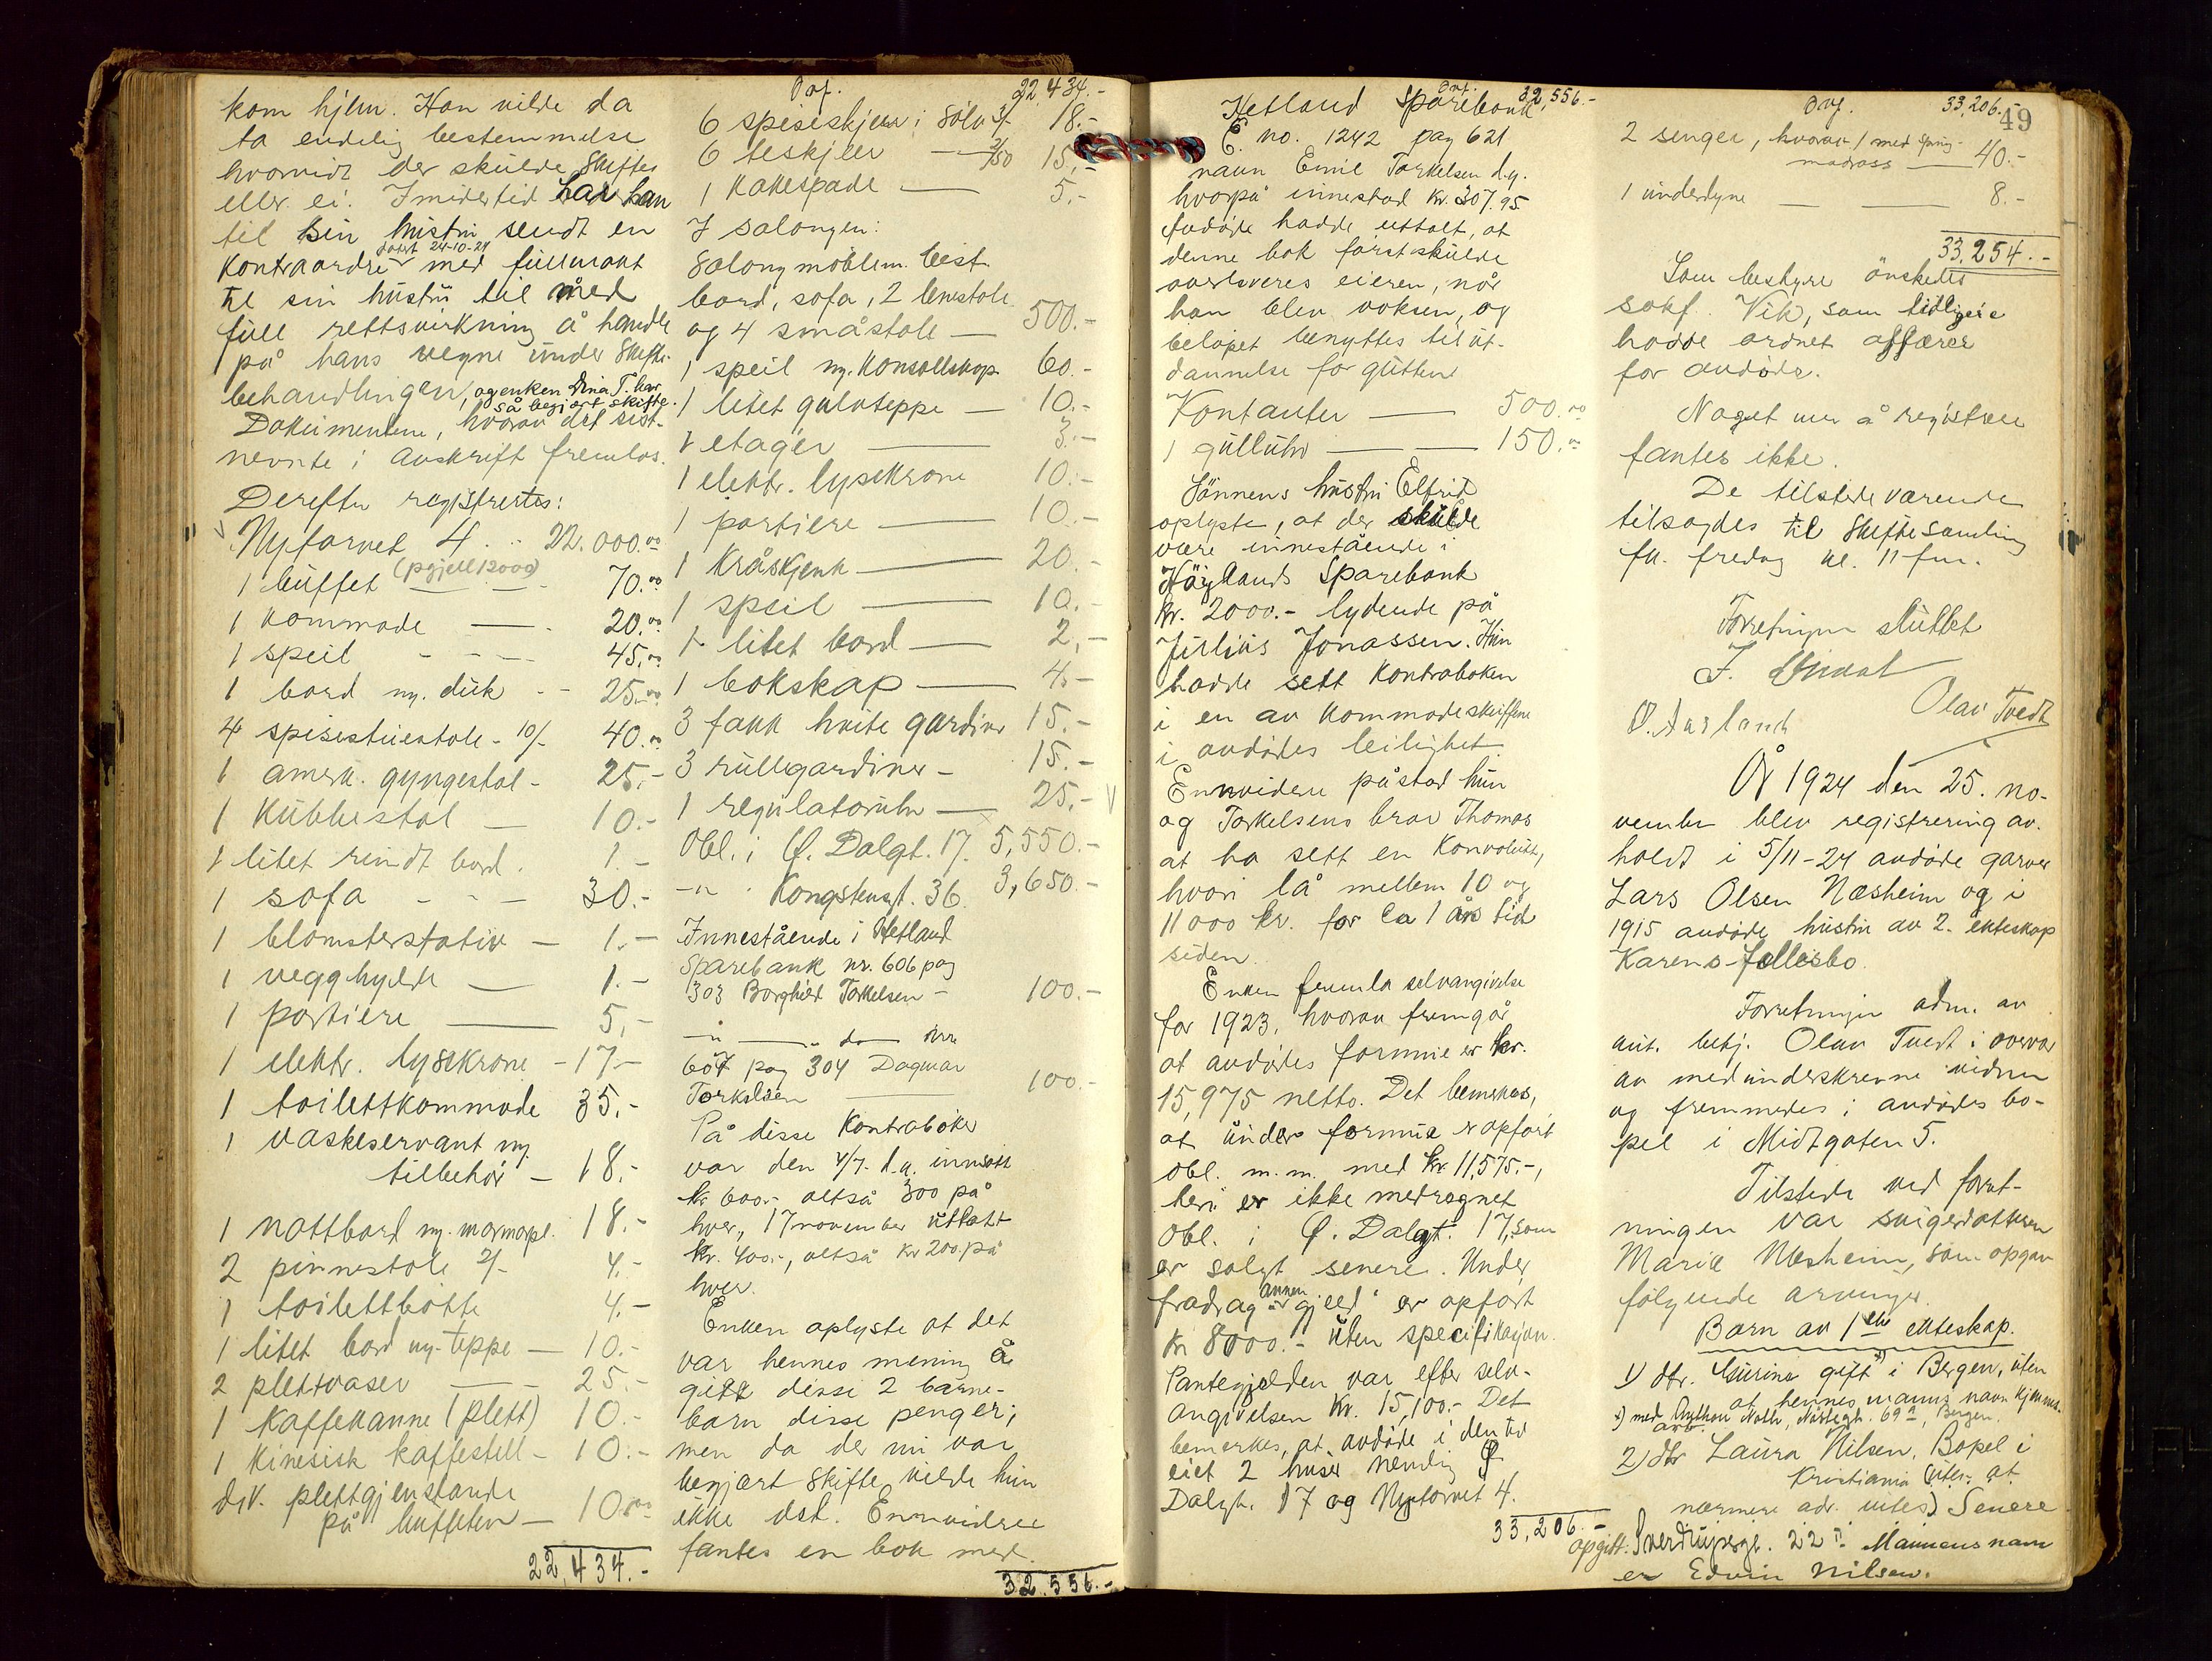 kom hjem. Han vilde da
ta endelig bestemmelse
hvorvidt der skulde skiftes
eller ei. Imidlertid har han
til sin hustru sendt en
datert 24-10-24
kontraordre med fullmakt
til sin hustru til med
full rettsvirkning å handle
på hans vegne under skifte-
behandlingen, og enken Dina T. har
så begjært skifte.
Dokumentene, hvorav det sist-
nevnte i avskrift fremlas.
Derefter registrertes:
Nytorvet 4 .. 22.000.00
(pgjeld 12000)
1 buffet — — 70.00
1 kommode — 20.00
1 speil - - - 45.00
1 bord m. duk - - 25.00
4 spisestuestole - 10/- 40.00
1 amerk. gyngestol - 25.-
1 kubbestol — 10.-
1 litet rundt bord . 1.-
1 sofa - - - 30.-
1 blomsterstativ — 1.-
1 vegghylde — 1.-
1 portiere — 5.-
1 elektr. lysekrone - 17.-
1 toilettkommode 35.-
1 vaskeservant m.
tilbehör - 18.-
1 nattbord m. marmorpl. 18.-
2 pinnestole 2/- 4.-
1 toilettbötte 4.-
1 litet bord m. teppe — 10.-
2 plettvaser — 25.-
1 kaffekanne (plett) 10.-
1 kinesisk kaffestell - 10.-
div. plettgjenstande
på buffeten — 10.00
22,434.-
Ovf. 22,434.-
6 spiseskjeer i sölv 3/- 18.-
6 teskjeer — 2/50 15.-
1 kakespade — 5.-
I salongen:
Salongmöblem. best.
bord, sofa, 2 lenestole
og 4 småstole — 500.-
1 speil m. konsollskap 60.-
1 litet gulvteppe — 10.-
1 etager — 3.-
1 elektr. lysekrone 10.-
1 portiere — 10.-
1 kråskjenk — 20.-
1 speil — 10.-
1 litet bord — 2.-
1 bokskap — 4.-
3 fakk hvite gardiner 15.-
3 rullegardiner - 15.-
1 regulatoruhr — 25.-
Obl. i Ø. Dalgt. 17. 5,550.-
-"- Kongstensgt. 36. 3,650.-
Innestående i Hetland
Sparebank nr. 606 pag
303 Borghild Torkelsen - 100.-
-"- — do — nr.
607 pag 304 Dagmar
Torkelsen — 100.-
På disse kontraböker
var den 4/7. d.a. innsatt
kr 600.- altså 300 på
hver, 17 november uttatt
kr. 400.-, altså kr 200 på
hver.
Enken oplyste at det
var hennes mening å
gitt disse 2 barne-
barn disse penger;
men da der nu var
begjært skifte vilde hun
ikke det. Ennvidere
fantes en bok med
32.556.-
Ovf. 32,556.-
Hetland Sparebank
E. no. 1242 pag 621
navn Emil Torkelsen d.y.
hvorpå innestod kr. 307.95
Avdöde hadde uttalt, at
denne bok först skulde
overleveres eieren, når
han blev voksen, og
belöpet benyttes til ut-
dannelse for gutten
Kontanter — 500.00
1 gulluhr — 150.00
Sönnens hustru Elfrid
oplyste, at der skulde
være innestående i
Höylands Sparebank
kr. 2000.- lydende på
Julius Jonassen. Hun
hadde sett kontraboken
i en av kommodeskuffene
i avdödes leilighet.
Ennvidere påstod hun
og Torkelsens bror Thomas
at ha sett en konvolutt,
hvori lå mellem 10 og
11000 kr. for ca 1 års tid
siden.
Enken fremla selvangivelse
for 1923, hvorav fremgår
at avdödes formue er kr.
15,975 netto. Det bemerkes,
at under formue er opfört
obl. m.m. med kr. 11,575.-,
heri er ikke medregnet
Obl. i Ø. Dalgt. 17, som
er solgt senere. Under
fradrag "annen gjeld" er opfört
kr 8000.- uten specifikasjon.
Pantegjelden var efter selv-
angivelsen kr. 15,100.- Det
bemerkes, at avdöde i den tid
eiet 2 huser nemlig Ø
Dalgt. 17 og Nytorvet 4.
33,206.-
49
Ovf. 33,206.-
2 senger, hvorav 1 med spring-
madrass — 40.-
1 underdyne — — 8.-
33,254.-
Som bestyrer önskedes
sakf. Vik, som tidligere
hadde ordnet affærer
for avdöde.
Noget mer å registrere
fantes ikke.
De tilstedeværende
tilsagdes til skiftesamling
fk. fredag kl. 11 fm.
Forretningen sluttet
Olav Tvedt
O. Aarland
År 1924 den 25. no-
vember blev registrering av-
holdt i 5/11-24 avdöde garver
Lars Olsen Næsheim og i
1915 avdöde hustru av 2. ekteskap
Karens fellesbo.
Forretningen adm. av
aut. betj. Olav Tvedt i overvær
av medunderskrevne vidner
og fremmedes i avdödes bo-
pel i Midtgaten 5.
Tilstede ved forret-
ningen var svigerdatteren
Marie Næsheim, som opgav
fölgende arvinger.
Barn av 1ste ekteskap.
1) dtr. Gurine gift x) i Bergen, uten
at hennes manns navn kjennes.
x) med Noth, 69 A, Bergen.
2) dtr Laura Nilsen. Bopel i
Kristiania (uten at
nærmere adr. vites) Senere
opgitt: Sverdrupsgt. 22 II. Mannens navn
er Edvin Nilsen.